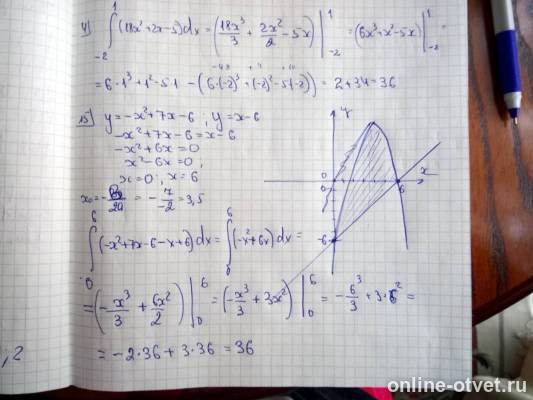 4) ∫₋₂¹ (18x²+2x-5)dx = (18x³/3 + 2x²/2 - 5x) |₋₂¹ = (6x³+x²-5x) |₋₂¹
= 6·1³+1²-5·1 - (6·(-2)³+(-2)²-5·(-2)) = 2+34=36
-48 + 4 + 10
15) y=-x²+7x-6 ; y=x-6
-x²+7x-6=x-6
-x²+6x=0
x²-6x=0 ;
x=0 ; x=6
x₀=-b/2a = -7/-2 = 3,5
∫₀⁶ (-x²+7x-6-x+6)dx = ∫₀⁶ (-x²+6x)dx =
= (-x³/3 + 6x²/2) |₀⁶ = (-x³/3 + 3x²) |₀⁶ = -6³/3 + 3·6² =
= -2·36+3·36 = 36
Y
x
0
0
6
-6
,2
online-otvet.ru